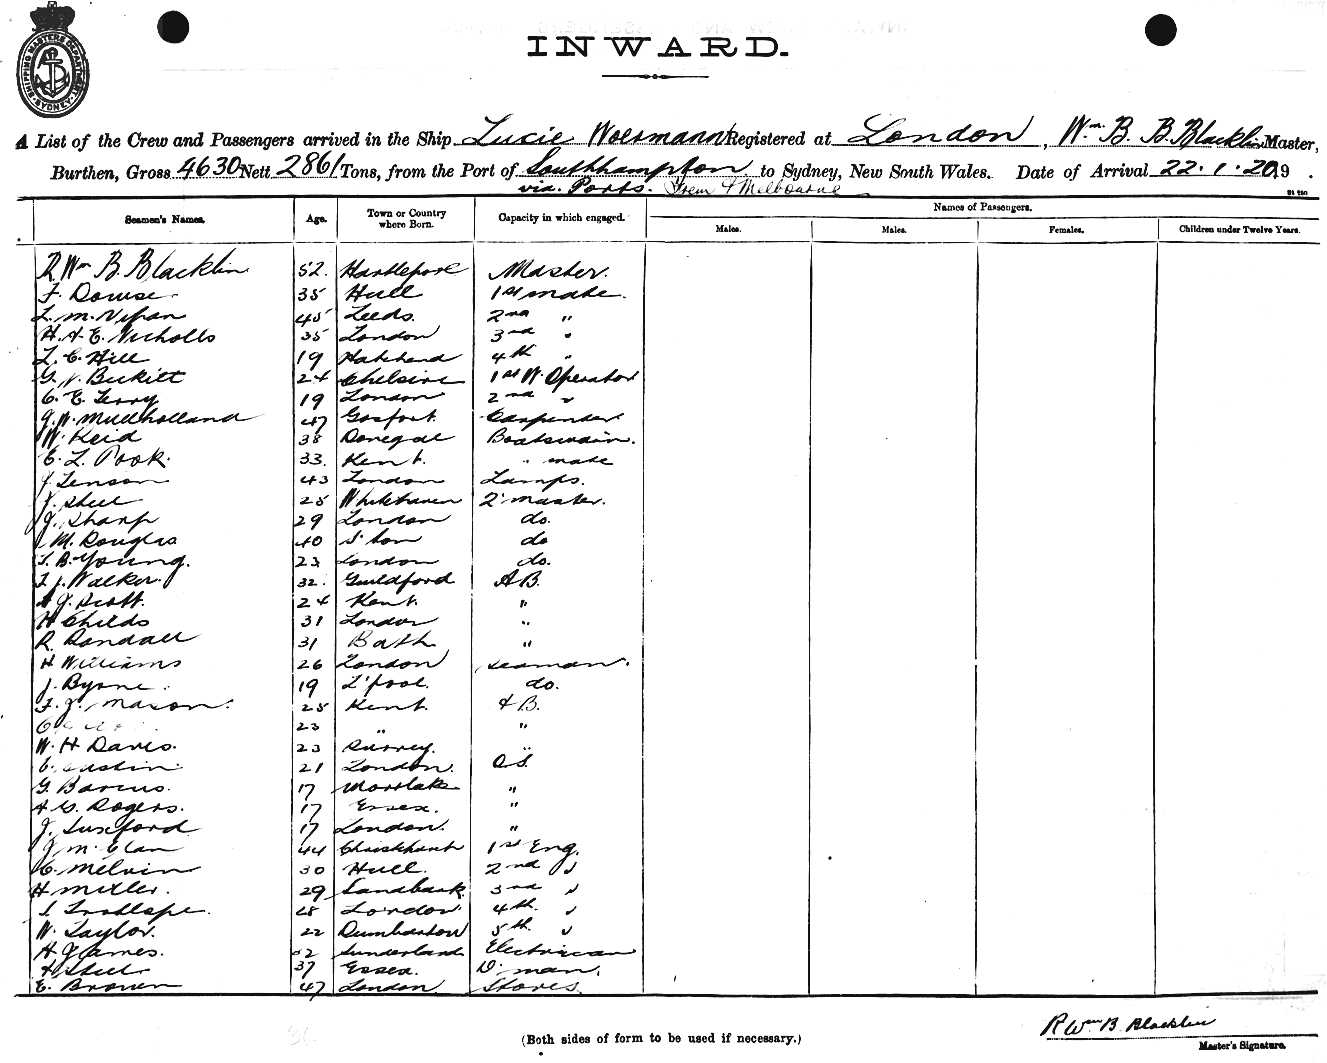 SHIPPING MASTERS DEPARTMENT
SYDNEY
INWARD.
A List of the Crew and Passengers arrived in the Ship Lucie Woermann Registered at London, Wm B. B. Blacklin Master,
Burthen, Gross 4630 Nett 2861 Tons, from the Port of Southhampton to Sydney, New South Wales. Date of Arrival 22.1.20 19 .
via. Ports. From Melbourne
Seamen's Names. Age. Town or Country where Born. Capacity in which engaged. Names of Passengers.
Males. Males. Females. Children under Twelve Years.
R Wm B. Blacklin 52. Hartlepore Master.
F. Dowse 35 Hull 1st mate.
L. M. 45 Leeds. 2nd "
H. A. E. Nicholls 35 London 3rd "
L. C. Hill 19 4th "
G. Beckitt 24 1st W. Operator
C. E. Terry 19 London 2nd "
J. W. Mullholland 47 Gosfort. Carpenter
W. Reid 38 Donegal Boatswain.
C. L. Pook. 33. Kent. " mate
J. 43 London Lamps.
J. 25 Whitehaven Q. master.
J. Sharp 29 London do.
M. Douglas 40 S'ton do
T. B. Young. 23 London do.
T. J. Walker. 32. Guildford AB.
A. J. Scott. 24 Kent. "
H Childs 31 London "
R. Randall 31 Bath "
H Williams 26 London seaman.
J. Byrne 19 L'pool. do.
F. J. Mason. 25 Kent. AB.
23 " "
W. H. Davis. 23 Surrey. "
C. Austin 21 London. O.S.
G. 17 Mortlake "
A. G. Rogers. 17 Essex. "
J. Luxford 17 London. "
J. 44 1st Eng.
C. Melvin 30 Hull. 2nd "
H Miller. 29 Sandbank 3rd "
Trollope. 28 London 4th. "
W. Taylor. 22 Dumbarton 5th. "
H. J. James. Sunderland Electrician
37 Essex. D. man.
E. Brown 47 London Stores.
(Both sides of form to be used if necessary.)
R Wm B Blacklin
Master's Signature.